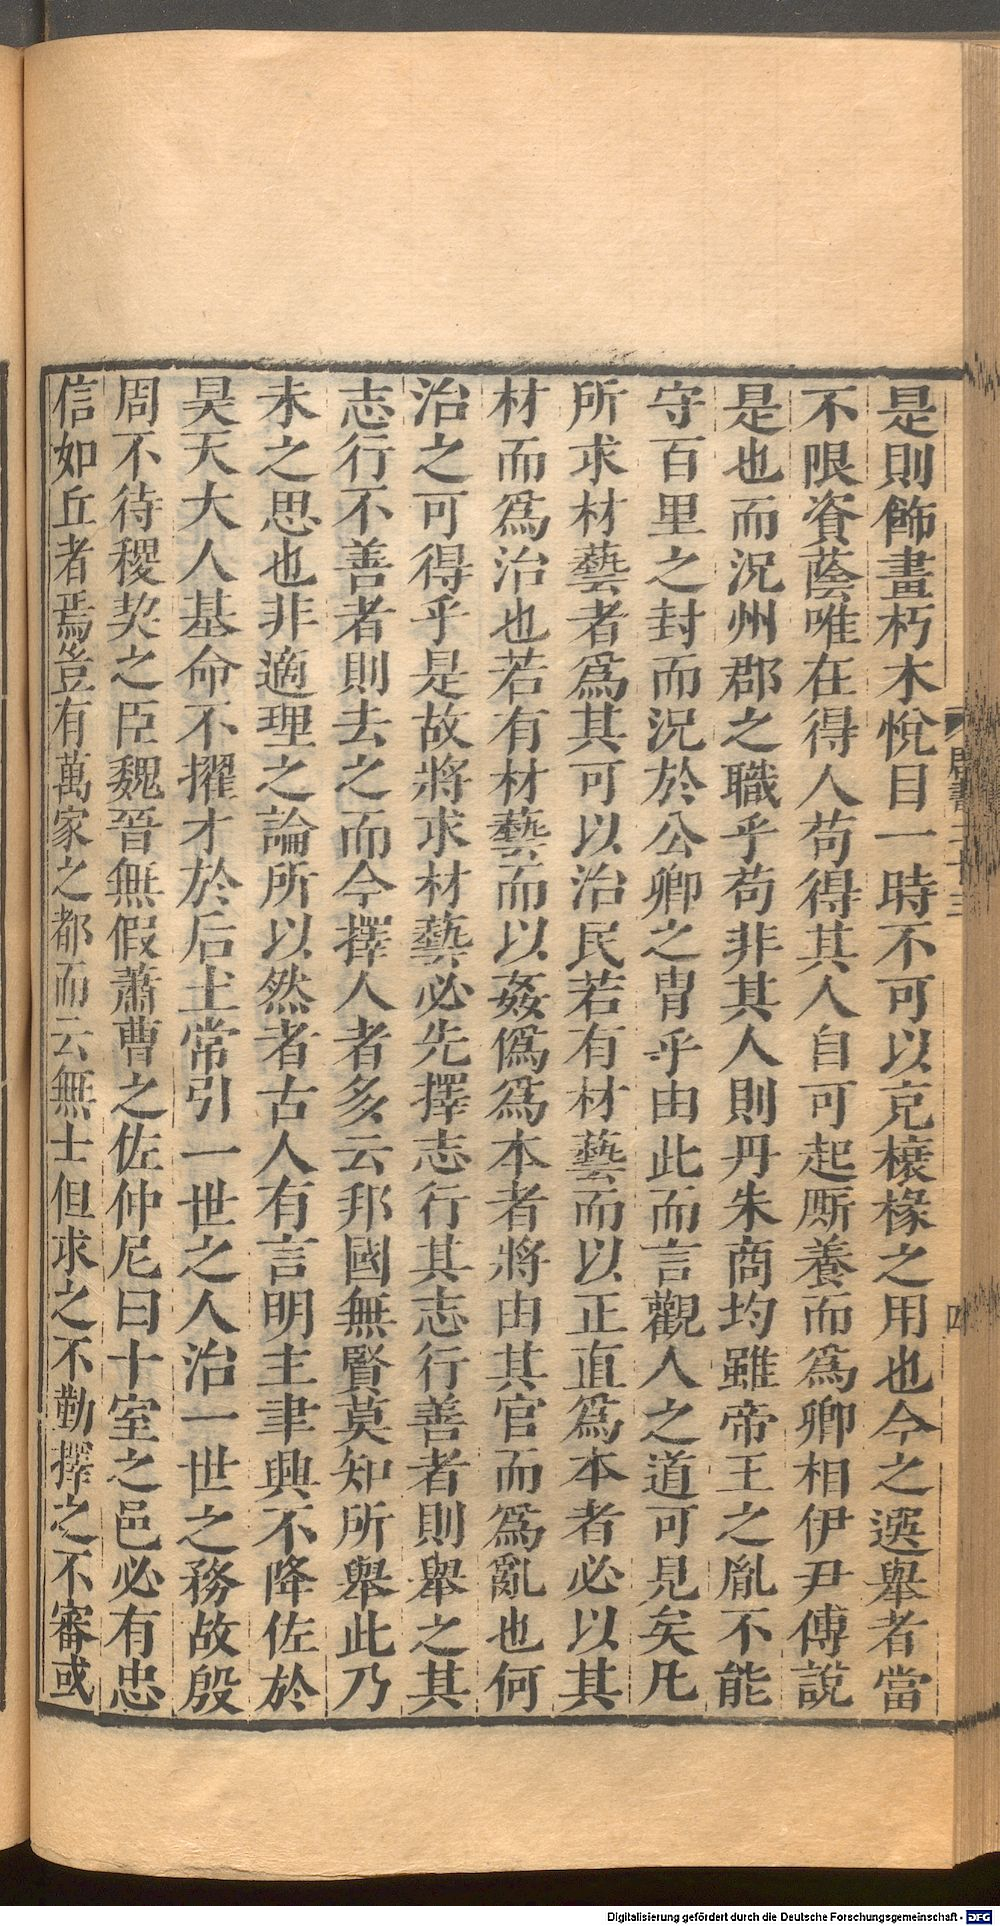 是則飾畫朽木悅目一時不可以充榱椽之用也今之選舉者當
不限資蔭唯在得人苟得其人自可起厮養而爲卿相伊尹傅說
是也而況州郡之職乎苟非其人則丹朱商均雖帝王之胤不能
守百里之封而況於公卿之胄乎由此而言觀人之道可見矣凡
所求材藝者爲其可以治民若有材藝而以正直爲本者必以其
材而爲治也若有材藝而以姦僞爲本者將由其官而爲亂也何
治之可得乎是故將求材藝必先擇志行其志行善者則舉之其
志行不善者則去之而今擇人者多云邦國無賢莫知所舉此乃
未之思也非適理之論所以然者古人有言明主聿興不降佐於
昊天大人基命不擢才於后土常引一世之人治一世之務故殷
周不待稷契之臣魏晉無假蕭曹之佐仲尼曰十室之邑必有忠
信如丘者焉豈有萬家之都而云無士但求之不勤擇之不審或
四
Digitalisierung gefördert durch die Deutsche Forschungsgemeinschaft - DFG